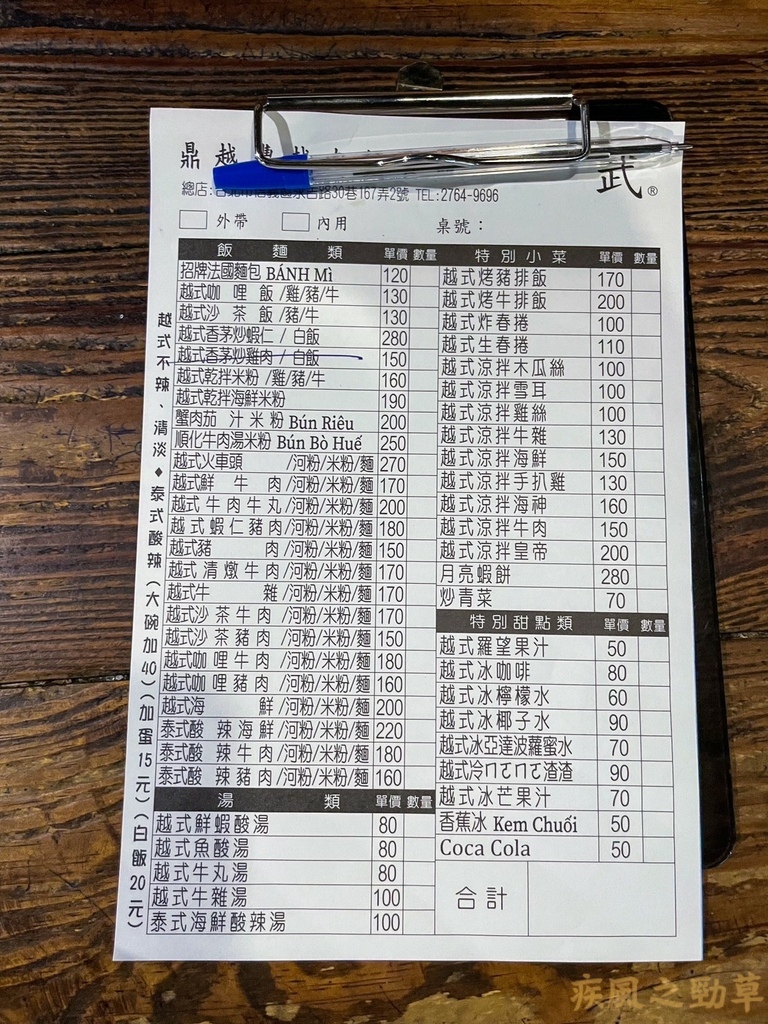 鼎越
武®
總店:台北市信義區永吉路30巷167弄2號 TEL:2764-9696
外帶 內用 桌號：
越式不辣、清淡◆泰式酸辣(大碗加40)(加蛋15元)(白飯20元)
飯麵類 單價 數量
招牌法國麵包 BÁNH Mì 120
越式咖哩飯/雞/豬/牛 130
越式沙茶飯/豬/牛 130
越式香茅炒蝦仁/白飯 280
越式香茅炒雞肉/白飯 150
越式乾拌米粉/雞/豬/牛 160
越式乾拌海鮮米粉 190
蟹肉茄汁米粉 Bún Riêu 200
順化牛肉湯米粉 Bún Bò Huế 250
越式火車頭/河粉/米粉/麵 270
越式鮮牛肉/河粉/米粉/麵 170
越式牛肉牛丸/河粉/米粉/麵 200
越式蝦仁豬肉/河粉/米粉/麵 180
越式豬肉/河粉/米粉/麵 150
越式清燉牛肉/河粉/米粉/麵 170
越式牛雜/河粉/米粉/麵 170
越式沙茶牛肉/河粉/米粉/麵 170
越式沙茶豬肉/河粉/米粉/麵 150
越式咖哩牛肉/河粉/米粉/麵 180
越式咖哩豬肉/河粉/米粉/麵 160
越式海鮮/河粉/米粉/麵 200
泰式酸辣海鮮/河粉/米粉/麵 220
泰式酸辣牛肉/河粉/米粉/麵 180
泰式酸辣豬肉/河粉/米粉/麵 160
湯類 單價 數量
越式鮮蝦酸湯 80
越式魚酸湯 80
越式牛丸湯 80
越式牛雜湯 100
泰式海鮮酸辣湯 100
特別小菜 單價 數量
越式烤豬排飯 170
越式烤牛排飯 200
越式炸春捲 100
越式生春捲 110
越式涼拌木瓜絲 100
越式涼拌雪耳 100
越式涼拌雞絲 100
越式涼拌牛雜 130
越式涼拌海鮮 150
越式涼拌手扒雞 130
越式涼拌海神 160
越式涼拌牛肉 150
越式涼拌皇帝 200
月亮蝦餅 280
炒青菜 70
特別甜點類 單價 數量
越式羅望果汁 50
越式冰咖啡 80
越式冰檸檬水 60
越式冰椰子水 90
越式冰亞達波蘿蜜水 70
越式冷ㄇㄛㄇㄛ渣渣 90
越式冰芒果汁 70
香蕉冰 Kem Chuối 50
Coca Cola 50
合計
疾風之勁草